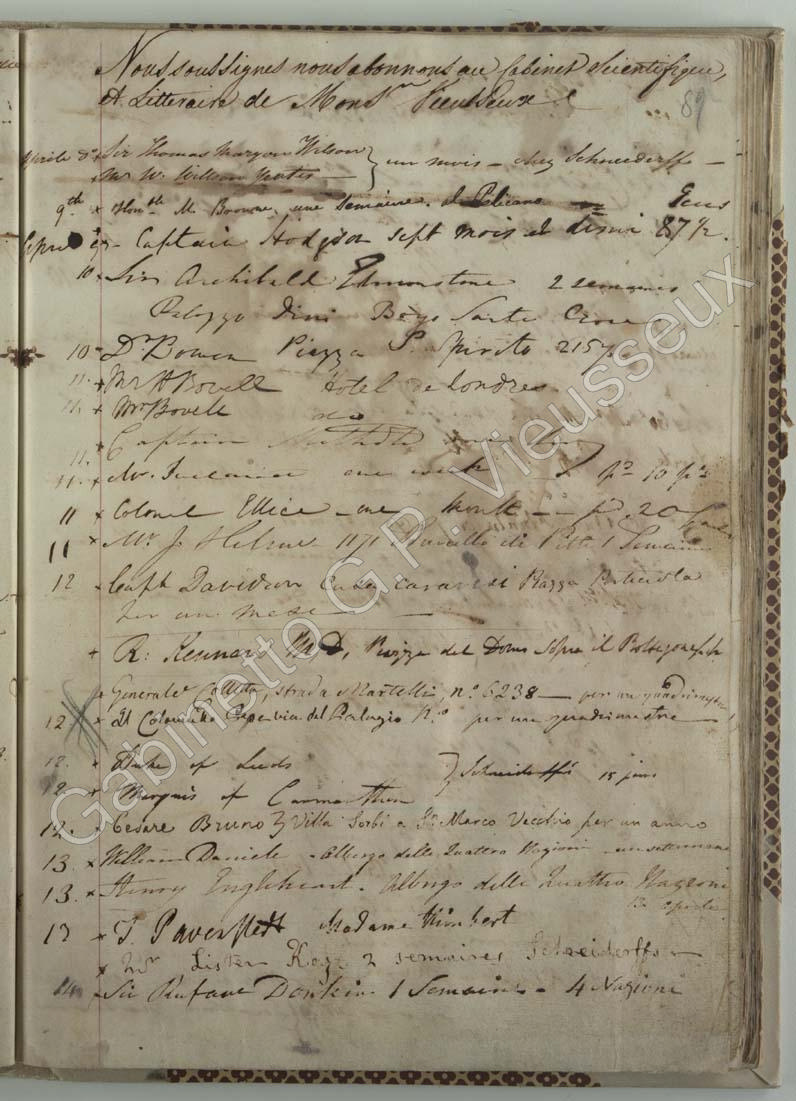 Nous soussignes nous abonnons au Cabinet scientifique,
et Litteraire de Mons.r Vieusseux
89
Aprile 8 x Sir Thomas Maryon Wilson } un mois - chez Schneiderffs -
x Mr W. Willson Yeates
9th x Hon.ble M. Browne. une Semaine. Il Pelicano
April 9 - Captain Hodgson sept mois et demi 87 1/2.
10 x Sir Archibald Edmonstone 2 semaines
Palazzo Dini Borgo Santa Croce
10 - Dr Bowen Piazza S. Spirito 2157
11. x Mr H Bovell Hotel de Londres
11. x Mr Bovell do
11. x Captain
11. x Mr one week 10 ps
11 x Colonel Ellice - one Month - 20
11 x Mr J 1171 di Pitti 1 Semaine
12 x Capt Davidson Casa Piazza
Per un mese
x R: Kennard MD, Piazza del Domo sopra il
x Generale Colletta, strada Martelli, n.o 6238 - per un quadrimestre
12 x Il Colonnello del Palagio N.o per un quadrimestre
12. x Duke of Leeds } Schneiderffs 15 jours
12 x Marquis of Carmarthen
12. x Cesare Bruno Villa Sorbi a S. Marco Vecchio per un anno
13. x William Daniele - Albergo delle Quattro Nazioni - un settimane
13. x Henry Engleheart - Albergo delle Quattro Nazioni
13 aprile
13 x T. Paverstedt Madame Humbert
x Mr Lister Kaye 2 semaines Schneiderffs -
14 x Sir Rufane Donkin - 1 Semaine - 4 Nazioni
Gabinetto G.P. Vieusseux